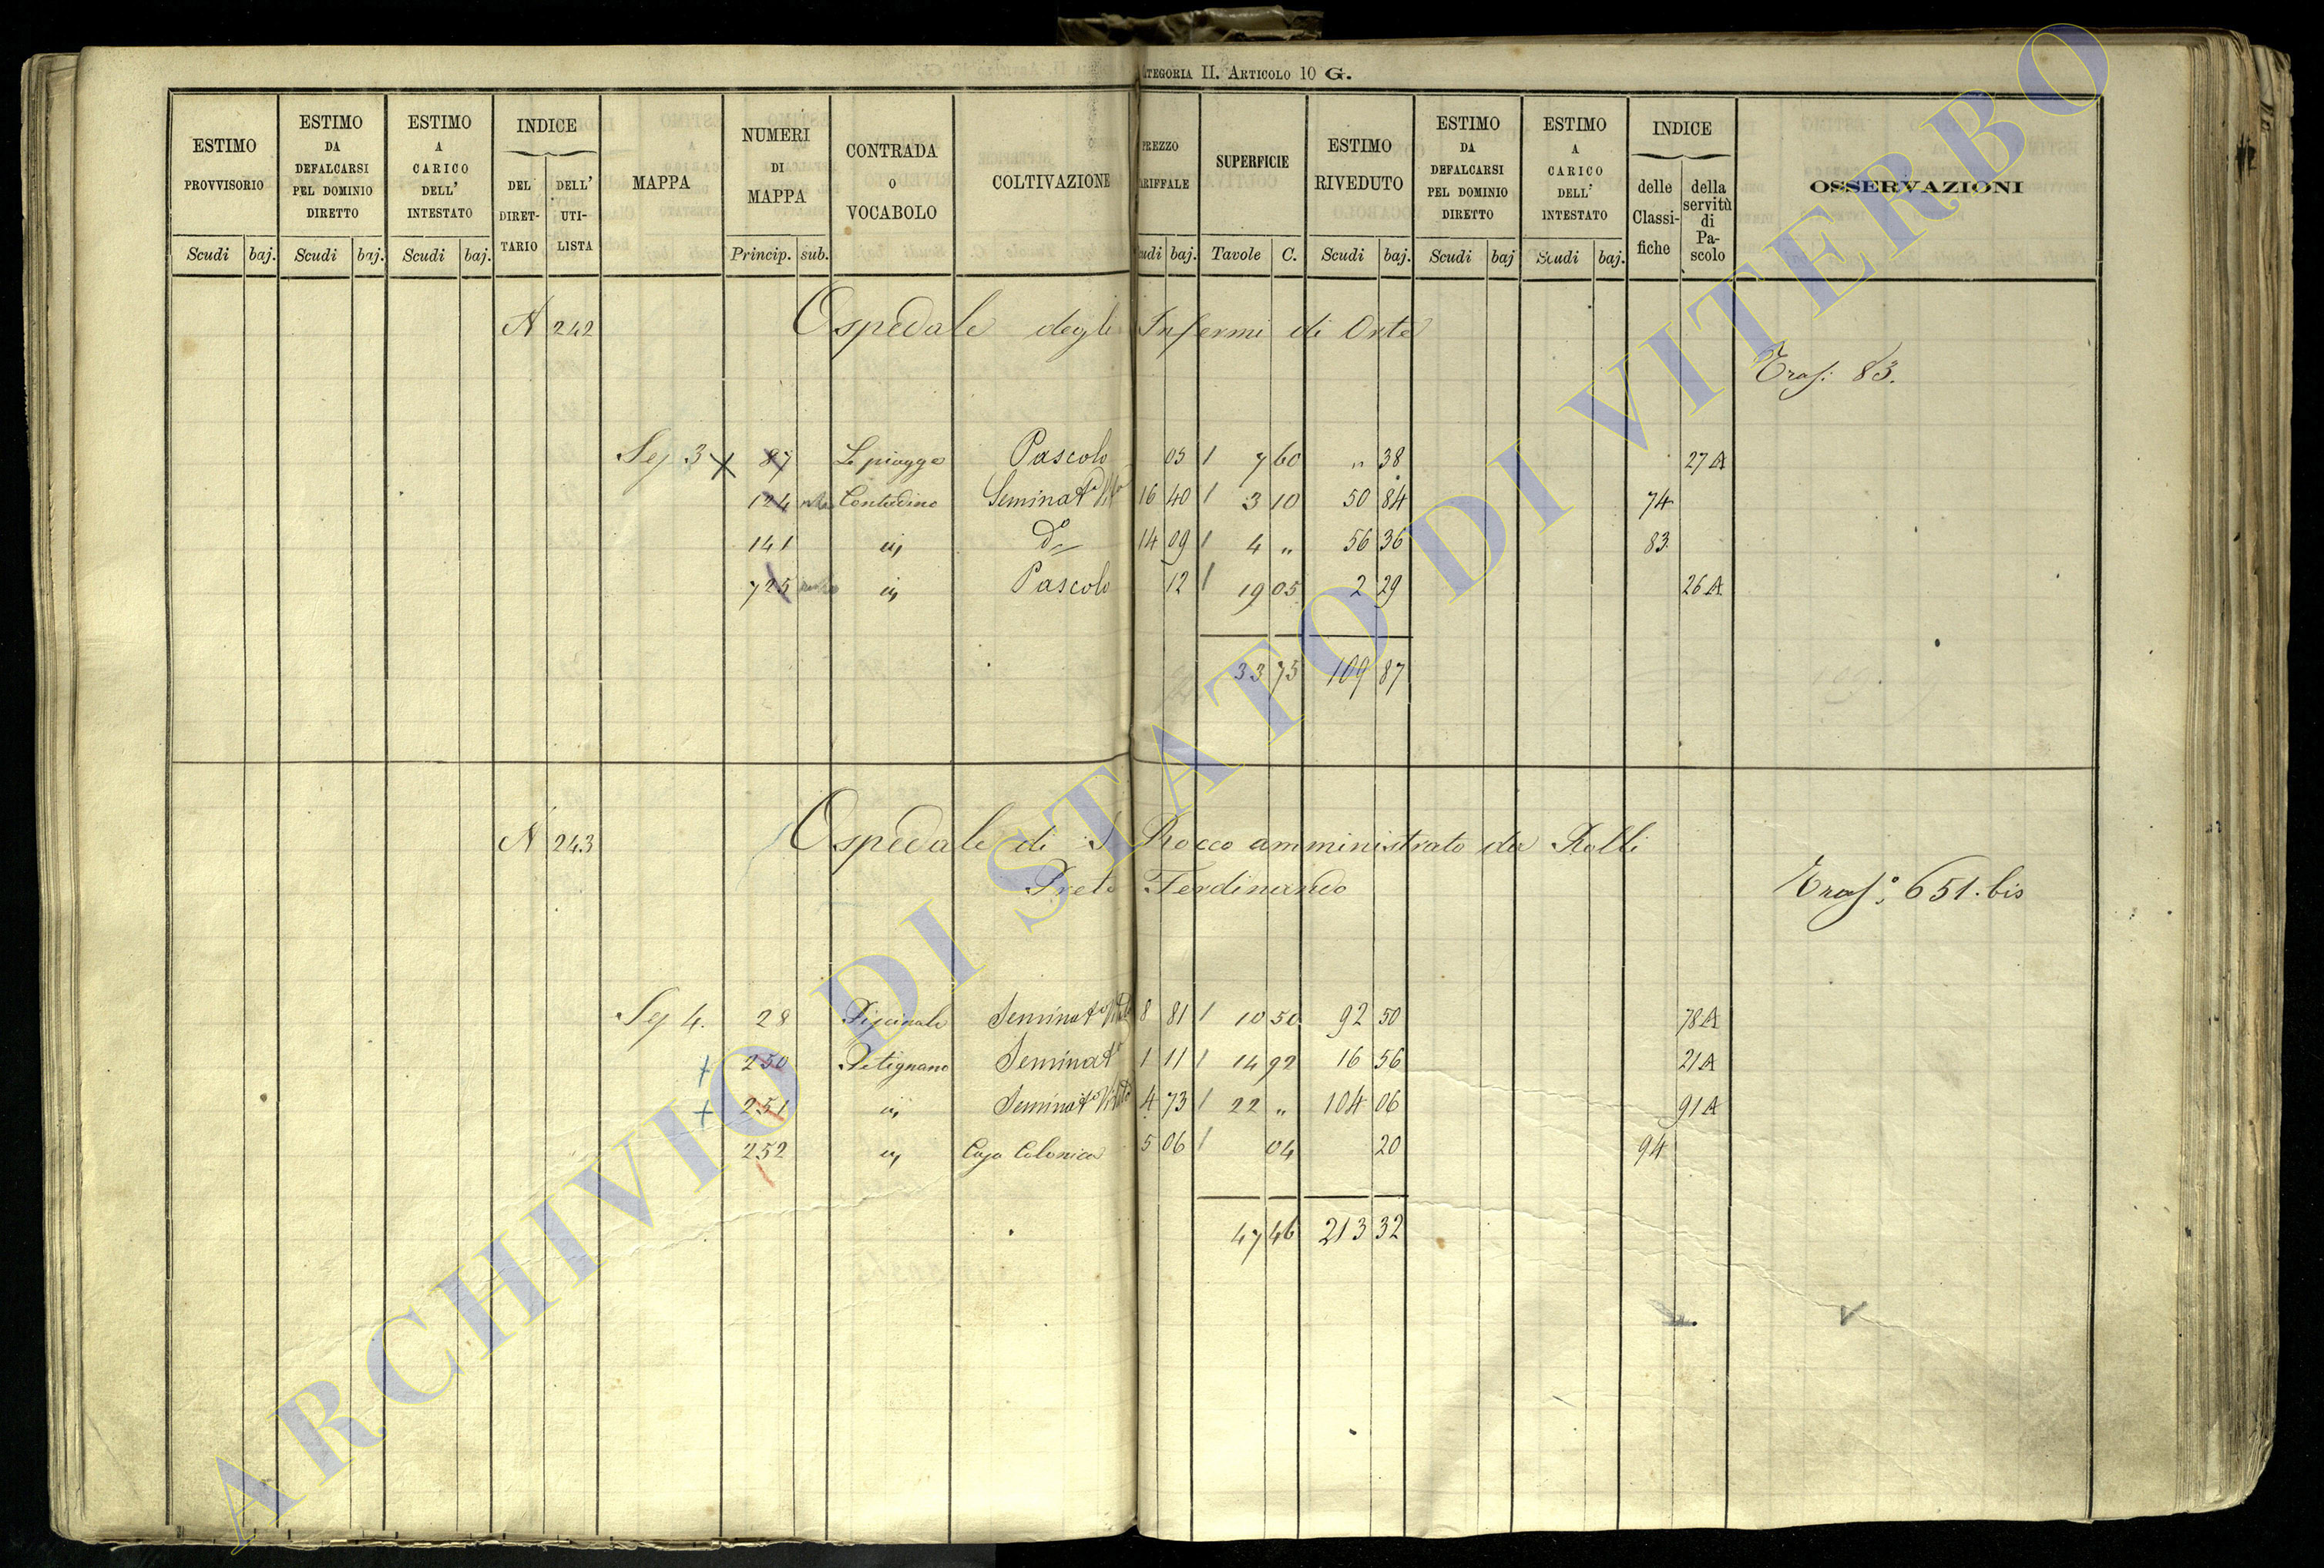 CATEGORIA II. ARTICOLO 10 G.
ESTIMO PROVVISORIO Scudi baj.
ESTIMO DA DEFALCARSI PEL DOMINIO DIRETTO Scudi baj.
ESTIMO A CARICO DELL' INTESTATO Scudi baj.
INDICE DEL DIRETTARIO DELL' UTILISTA
MAPPA
NUMERI DI MAPPA Princip. sub.
CONTRADA O VOCABOLO
COLTIVAZIONE
PREZZO TARIFFALE Scudi baj.
SUPERFICIE Tavole C.
ESTIMO RIVEDUTO Scudi baj.
ESTIMO DA DEFALCARSI PEL DOMINIO DIRETTO Scudi baj
ESTIMO A CARICO DELL' INTESTATO Scudi baj.
INDICE delle Classifiche della servitù di Pascolo
OSSERVAZIONI
N 242 Ospedale degli Infermi di Orte
Trasf: 83.
Sez 3 X 87 Le piagge Pascolo 05 / 7 60 " 38 27 A
124 Contudino Seminat° Vit° 16 40 / 3 10 50 84 74
141 iv, d° 14 09 / 4 " 56 36 83
725 iv, Pascolo 12 / 19 05 2 29 26 A
33 75 109 87
N 243 Ospedale di S Rocco amministrato da Rolli
Prete Ferdinando
Trasf: 651. bis
Sez 4. 28 Piscinale Seminat° Vitato 8 81 / 10 50 92 50 78 A
+ 250 Petignano Seminat° 1 11 / 14 92 16 56 21 A
+ 251 iv, Seminat° Vitato 4 73 / 22 " 104 06 91 A
252 iv, Casa Colonica 5 06 / 04 20 94
47 46 213 32
ARCHIVIO DI STATO DI VITERBO